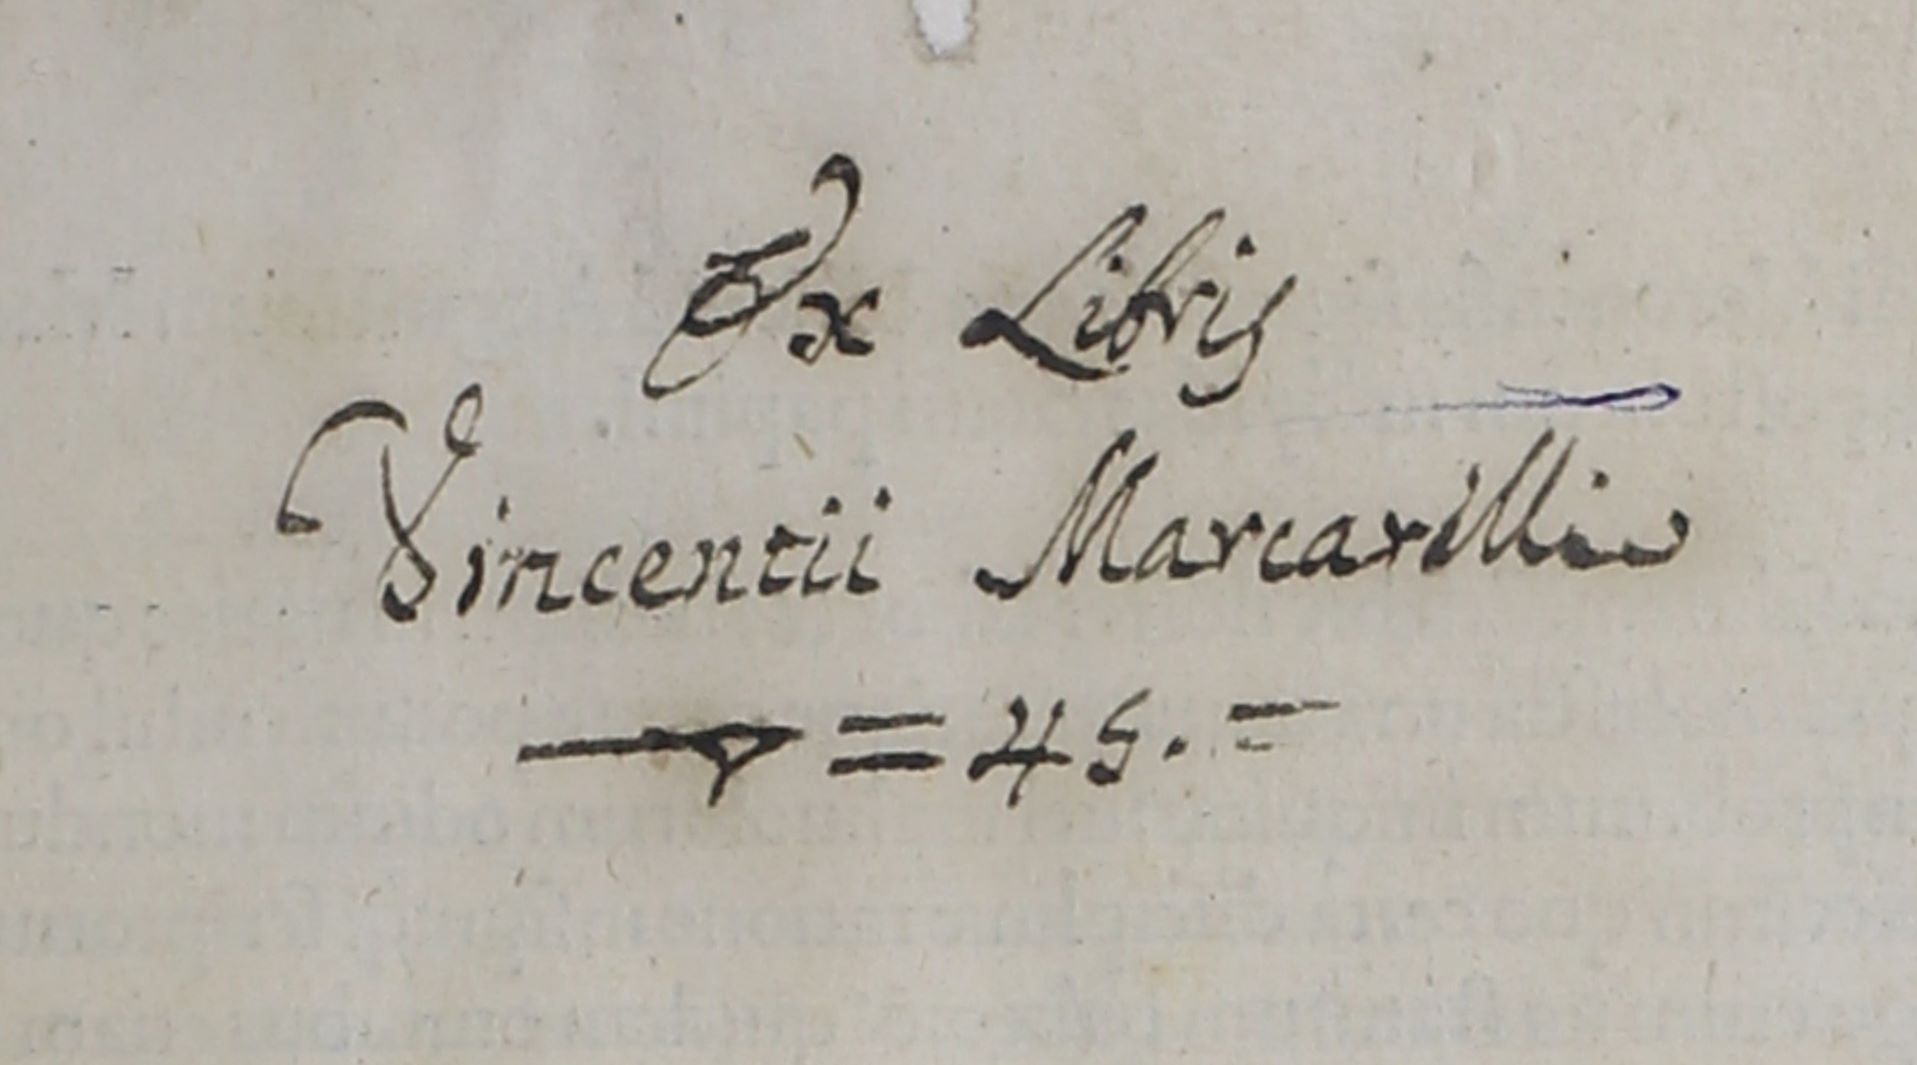 Ex Libris
Vincentii Marcarilli
= 45. =